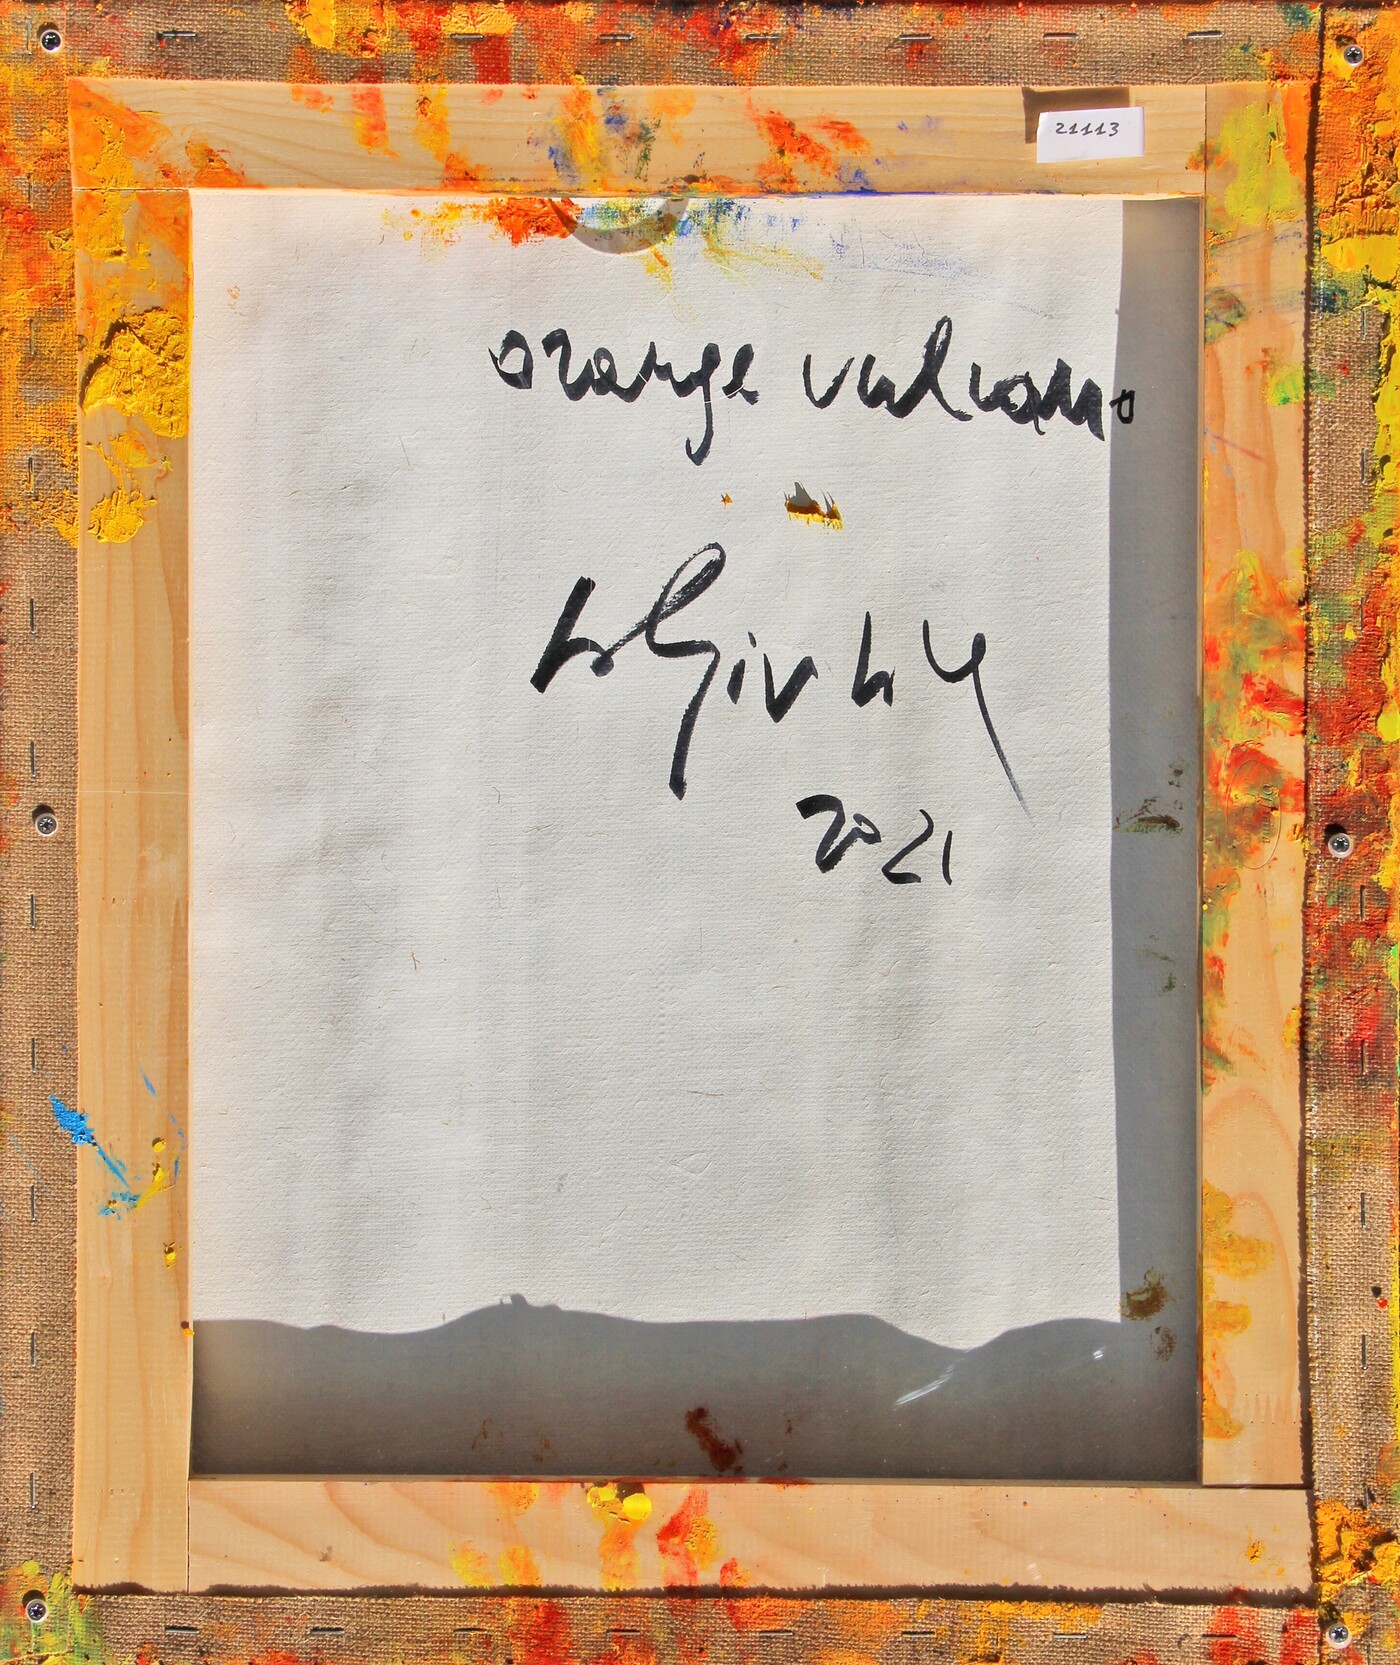 21113
orange vulcano
2021